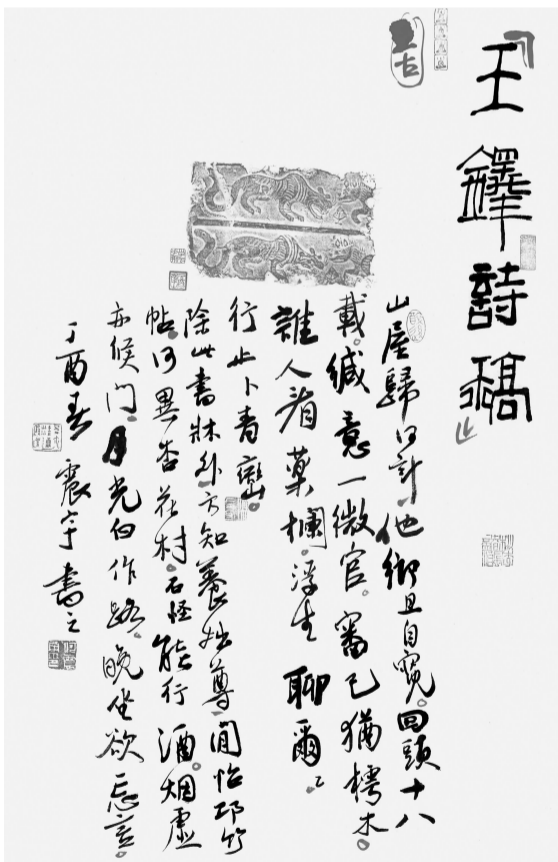 「王鐸詩稿」
山屋歸何計。他鄉且自寬。回頭十八
載。緘意一微官。審己猶樗木。
誰人看藥欄。浮生聊爾爾。
行止卜青巒。
除此書牀外。方知養拙尊。閒怡邛竹
帖。何異杏花村。石怪能行酒。烟虛
亦候門。月光白作路。晚坐欲忘言。
丁酉春 震宇書之